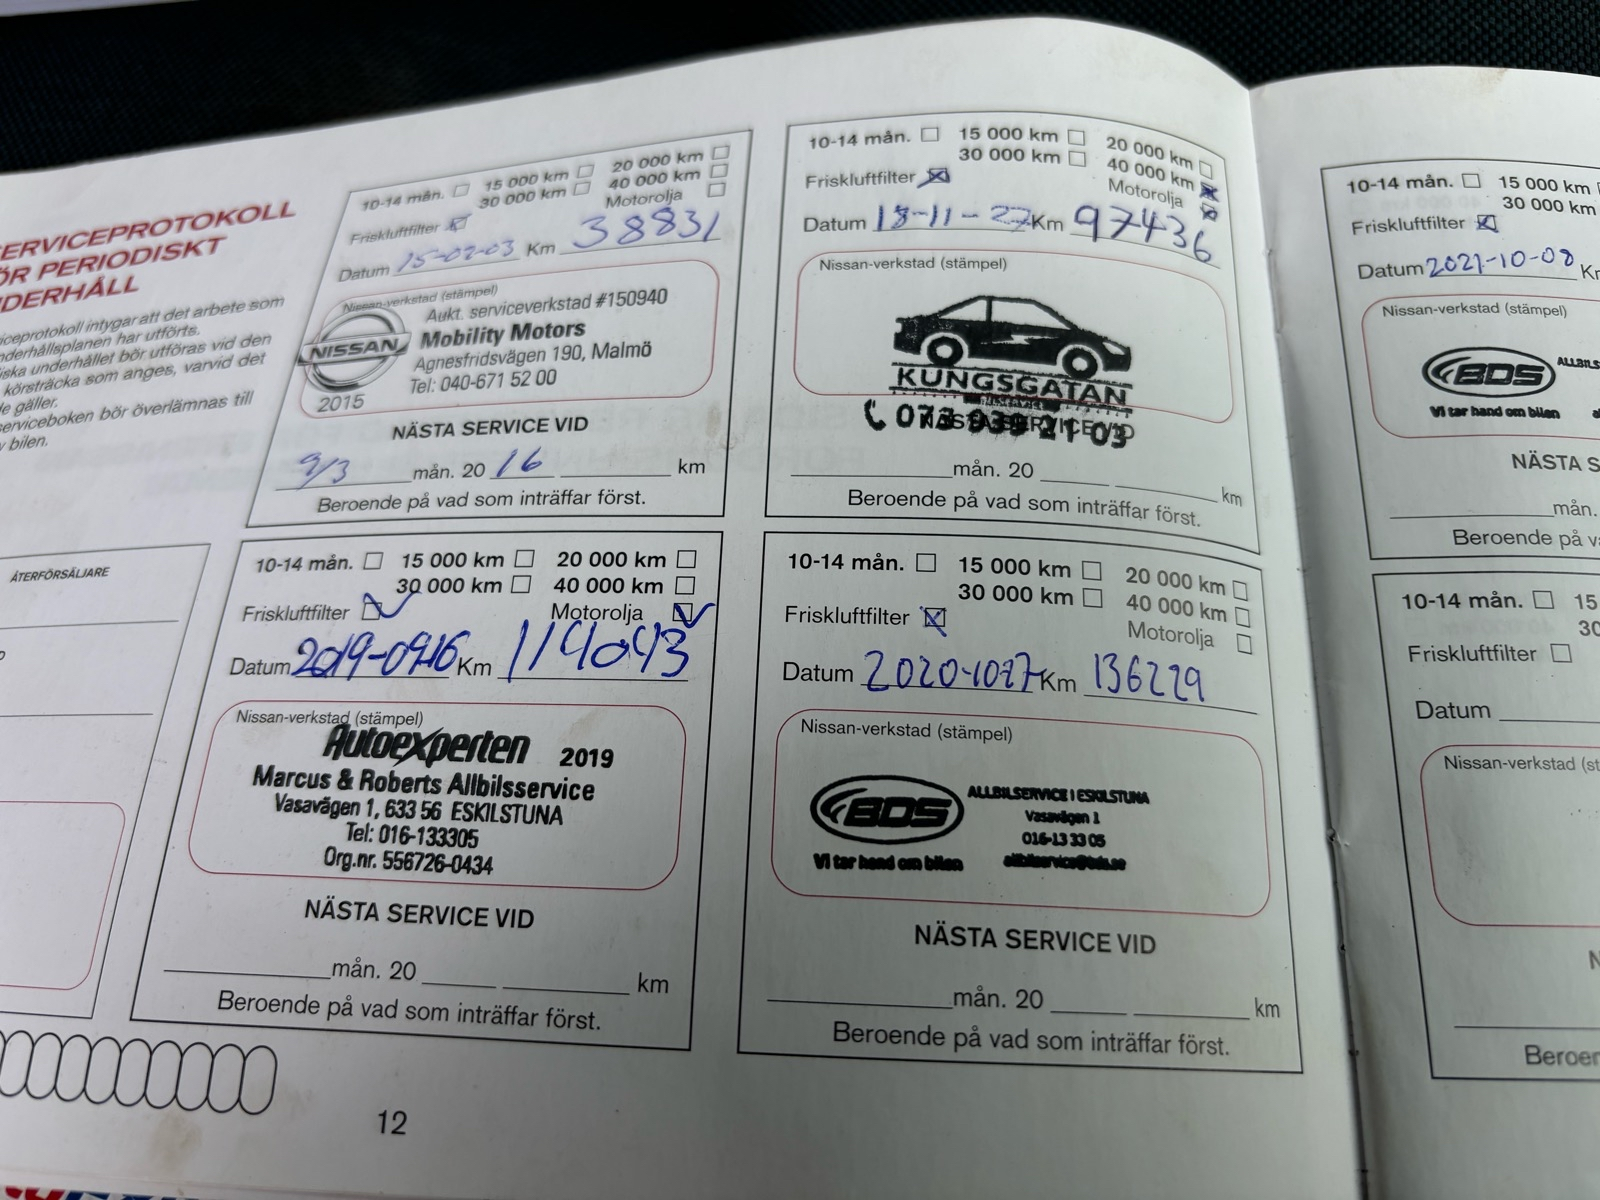 SERVICEPROTOKOLL
FÖR PERIODISKT
UNDERHÅLL
serviceprotokoll intygar att det arbete som
underhållsplanen har utförts.
underhållet bör utföras vid den
körsträcka som anges, varvid det
gäller.
serviceboken bör överlämnas till
av bilen.
ÅTERFÖRSÄLJARE
10-14 mån. 15 000 km 20 000 km
30 000 km 40 000 km
Friskluftfilter Motorolja
Datum 15-02-03 Km 38831
Nissan-verkstad (stämpel)
Aukt. serviceverkstad #150940
NISSAN Mobility Motors
Agnesfridsvägen 190, Malmö
Tel: 040-671 52 00
2015
NÄSTA SERVICE VID
9/3 mån. 20 16 km
Beroende på vad som inträffar först.
10-14 mån. 15 000 km 20 000 km
30 000 km 40 000 km
Friskluftfilter Motorolja
Datum 2019-09-16 Km 114043
Nissan-verkstad (stämpel)
Autoexperten 2019
Marcus & Roberts Allbilsservice
Vasavägen 1, 633 56 ESKILSTUNA
Tel: 016-133305
Org.nr. 556726-0434
NÄSTA SERVICE VID
mån. 20 km
Beroende på vad som inträffar först.
12
10-14 mån. 15 000 km 20 000 km
30 000 km 40 000 km
Friskluftfilter Motorolja
Datum 18-11-27 Km 97436
Nissan-verkstad (stämpel)
KUNGSGATAN
073 939 21 03
NÄSTA SERVICE VID
mån. 20 km
Beroende på vad som inträffar först.
10-14 mån. 15 000 km 20 000 km
30 000 km 40 000 km
Friskluftfilter Motorolja
Datum 2020-10-27 Km 136229
Nissan-verkstad (stämpel)
BDS ALLBILSERVICE I ESKILSTUNA
Vasavägen 1
016-13 33 05
Vi tar hand om bilen allbilservice@bds.se
NÄSTA SERVICE VID
mån. 20 km
Beroende på vad som inträffar först.
10-14 mån. 15 000 km
30 000 km
Friskluftfilter
Datum 2021-10-08 Km
Nissan-verkstad (stämpel)
BDS ALLBILS
Vi tar hand om bilen
NÄSTA S
mån.
Beroende på v
10-14 mån. 15
30
Friskluftfilter
Datum
Nissan-verkstad (st
N
Beroen